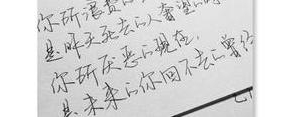 你所浪费的
是昨天死去的人奢望的
你所厌恶的现在，
是未来的你回不去的曾经